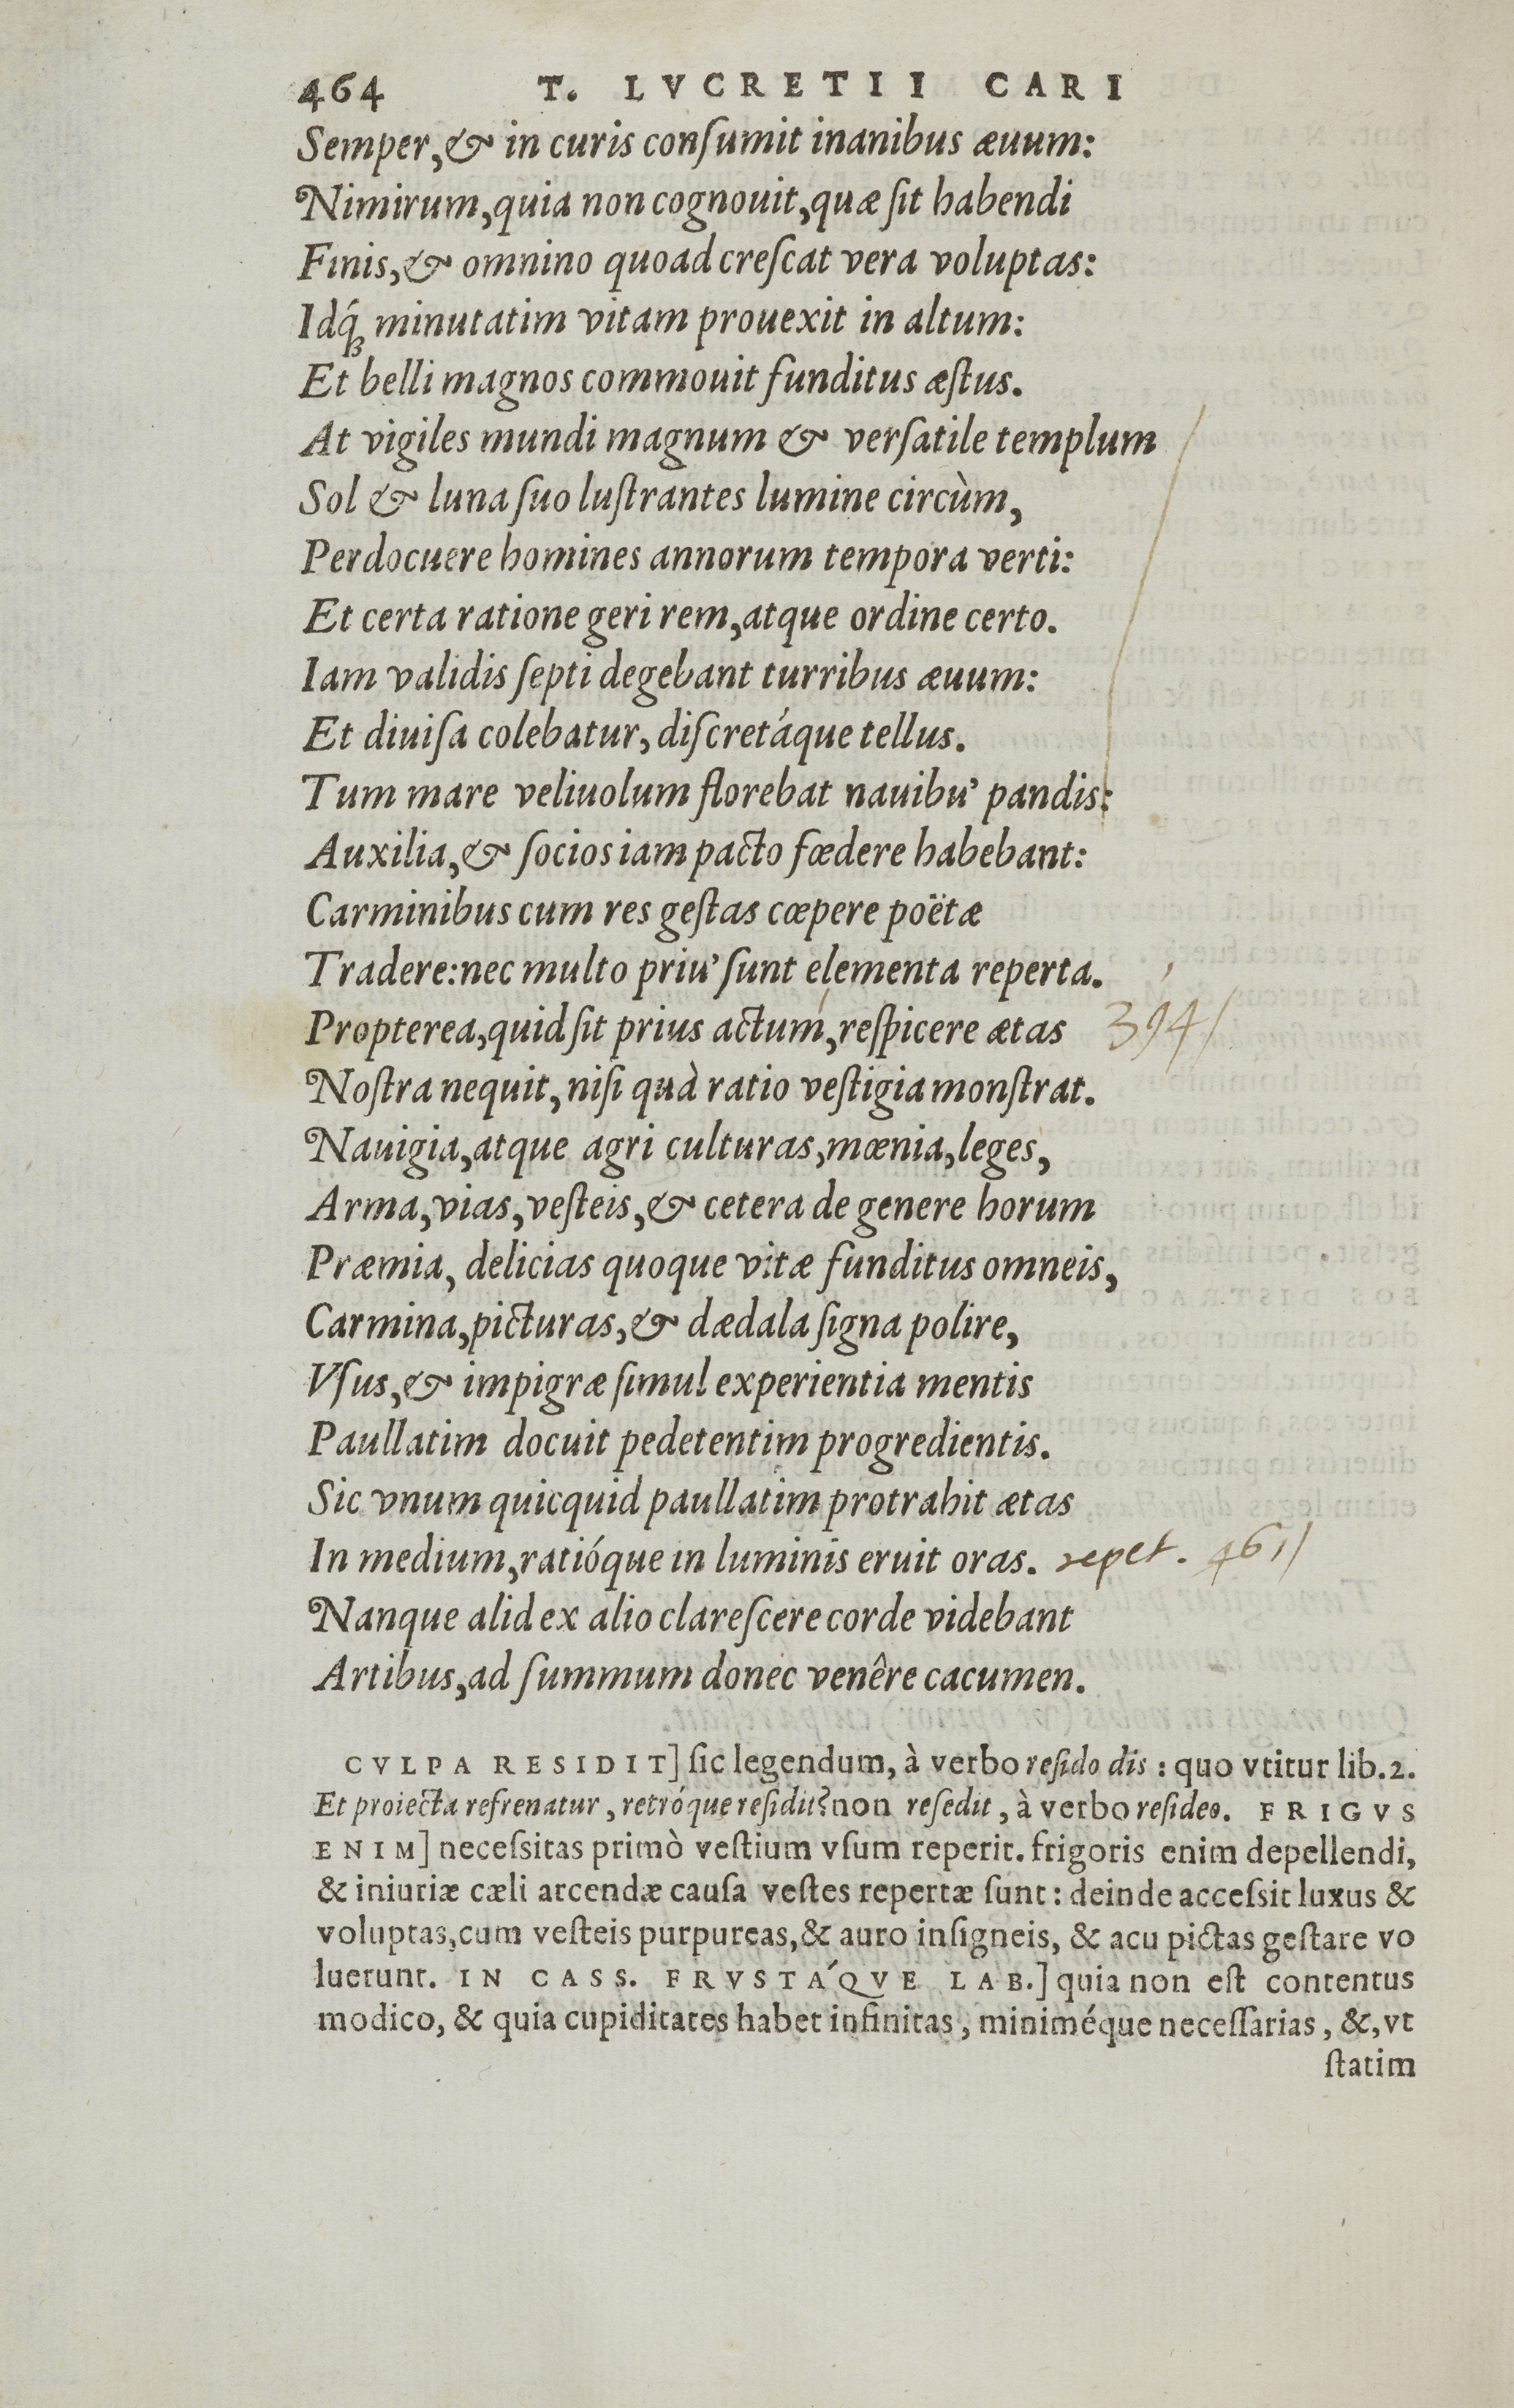 464 T. LVCRETII CARI
Semper, & in curis conſumit inanibus æuum:
Nimirum, quia non cognouit, quæ ſit habendi
Finis, & omnino quoad creſcat vera voluptas:
Idq́ꝫ minutatim vitam prouexit in altum:
Et belli magnos commouit funditus æſtus.
At vigiles mundi magnum & verſatile templum
Sol & luna ſuo luſtrantes lumine circùm,
Perdocuere homines annorum tempora verti:
Et certa ratione geri rem, atque ordine certo.
Iam validis ſepti degebant turribus æuum:
Et diuiſa colebatur, diſcretáque tellus.
Tum mare veliuolum florebat nauibu' pandis:
Auxilia, & ſocios iam pacto fœdere habebant:
Carminibus cum res geſtas cœpere poëtæ
Tradere: nec multo priu' ſunt elementa reperta.
Propterea, quid ſit prius actum, reſpicere ætas 394/
Noſtra nequit, niſi quà ratio veſtigia monſtrat.
Nauigia, atque agri culturas, mœnia, leges,
Arma, vias, veſteis, & cetera de genere horum
Præmia, delicias quoque vitæ funditus omneis,
Carmina, picturas, & dædala ſigna polire,
Vſus, & impigræ ſimul experientia mentis
Paullatim docuit pedetentim progredientis.
Sic vnum quicquid paullatim protrahit ætas
In medium, ratióque in luminis eruit oras. repet. 461/
Nanque alid ex alio clareſcere corde videbant
Artibus, ad ſummum donec venêre cacumen.
CVLPA RESIDIT] ſic legendum, à verbo reſido dis: quo vtitur lib.2.
Et proiecta refrenatur, retróque reſidit? non reſedit, à verbo reſideo. FRIGVS
ENIM] neceſsitas primò veſtium vſum reperit. frigoris enim depellendi,
& iniuriæ cæli arcendæ cauſa veſtes repertæ ſunt: deinde acceſsit luxus &
voluptas, cum veſteis purpureas, & auro inſigneis, & acu pictas geſtare vo
luerunt. IN CASS. FRVSTÁQVE LAB.] quia non eſt contentus
modico, & quia cupiditates habet infinitas, miniméque neceſſarias, &, vt
ſtatim